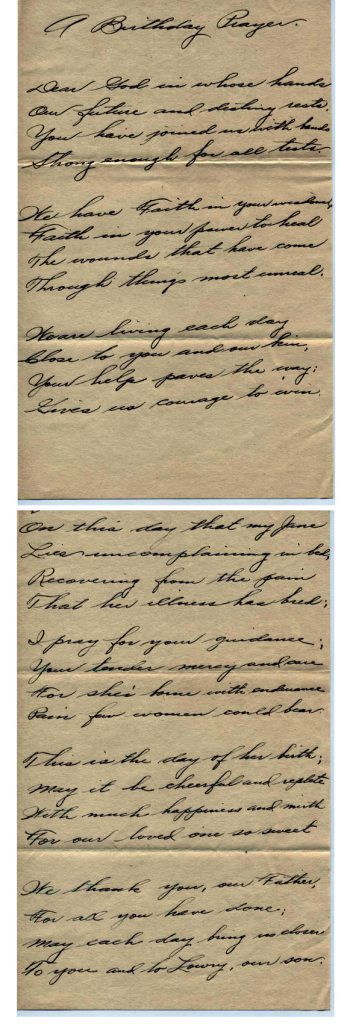 A Birthday Prayer.
Dear God in whose hands
Our future and destiny rests,
You have joined us with bonds
Strong enough for all tests.
We have Faith in your
Faith in your power to heal
The wounds that have come
Through things most unreal.
We are living each day
Close to you and our kin,
Your help paves the way;
Gives us courage to win.
On this day that my Jane
Lies uncomplaining in bed,
Recovering from the pain
That her illness has bred;
I pray for your guidance;
Your tender mercy and care
For she's borne with endurance
Pain few women could bear.
This is the day of her birth;
May it be cheerful and replete
With much happiness and mirth
For our loved one so sweet
We thank you, our Father,
For all you have done;
May each day bring us closer
To you and to Lowry, our son.